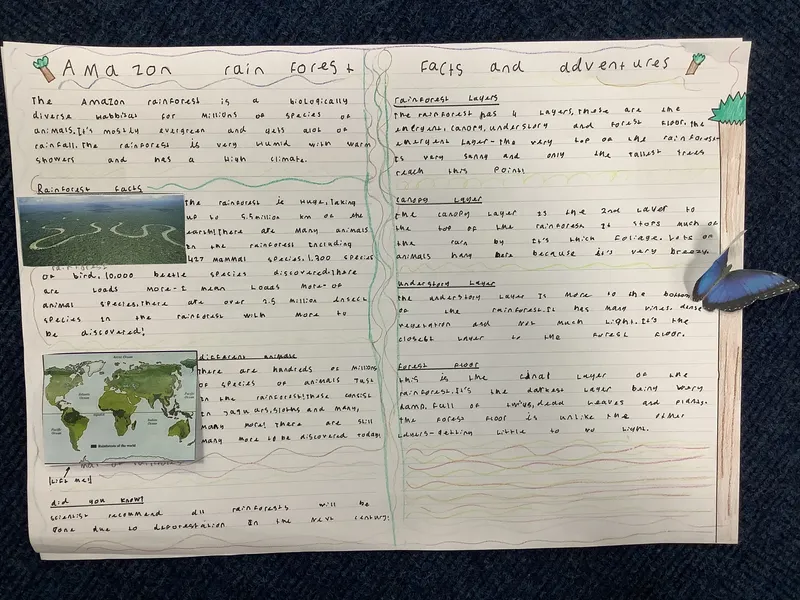 Amazon rain forest
The Amazon rainforest is a biologically
diverse habbitat for millions of species of
animals. It's mostly evergreen and gets alot of
rainfall. The rainforest is very humid with warm
showers and has a high climate.
Rainforest facts
The rainforest is Huge. Taking
up to 5.5 million km of the
earth! There are many animals
in the rainforest including
427 mammal species. 1,300 species
of bird. 10,000 beetle species discovered. There
are loads more - I mean loads more - of
animal species. there are over 2.5 million insect
species in the rainforest with more to
be discovered!
different animals
There are hundreds of millions
of species of animals Just
in the rainforest! these consist
in Jaguars, sloths and many,
many more! There are still
many more to be discovered today
Arctic Ocean
Atlantic Ocean
Pacific Ocean
Equator
Indian Ocean
Pacific Ocean
Rainforests of the world
Lift me!
did you know!
scientist recommend all rainforests will be
Gone due to deforestation in the next century!
facts and adventures
rainforest Layers
the rainforest has 4 layers, these are the
emergent, canopy, understory and forest floor. the
emergent Layer - the very top of the rainforest
Is very sunny and only the tallest trees
reach this point!
canopy Layer
the canopy Layer is the 2nd Layer to
the top of the rainforest It stops much of
the rain by It's thick foliage. Lots of
animals hang here because it's very breezy.
understory Layer
the understory Layer Is more to the bottom
of the rainforest. It has many vines. dense
vegetation and not much Light. It's the
closest Layer to the forest floor.
forest floor
this is the final Layer of the
rainforest. It's the darkest Layer being very
damp. full of twigs, dead Leaves and plants.
the forest floor is unlike the other
Layers - getting little to no light.